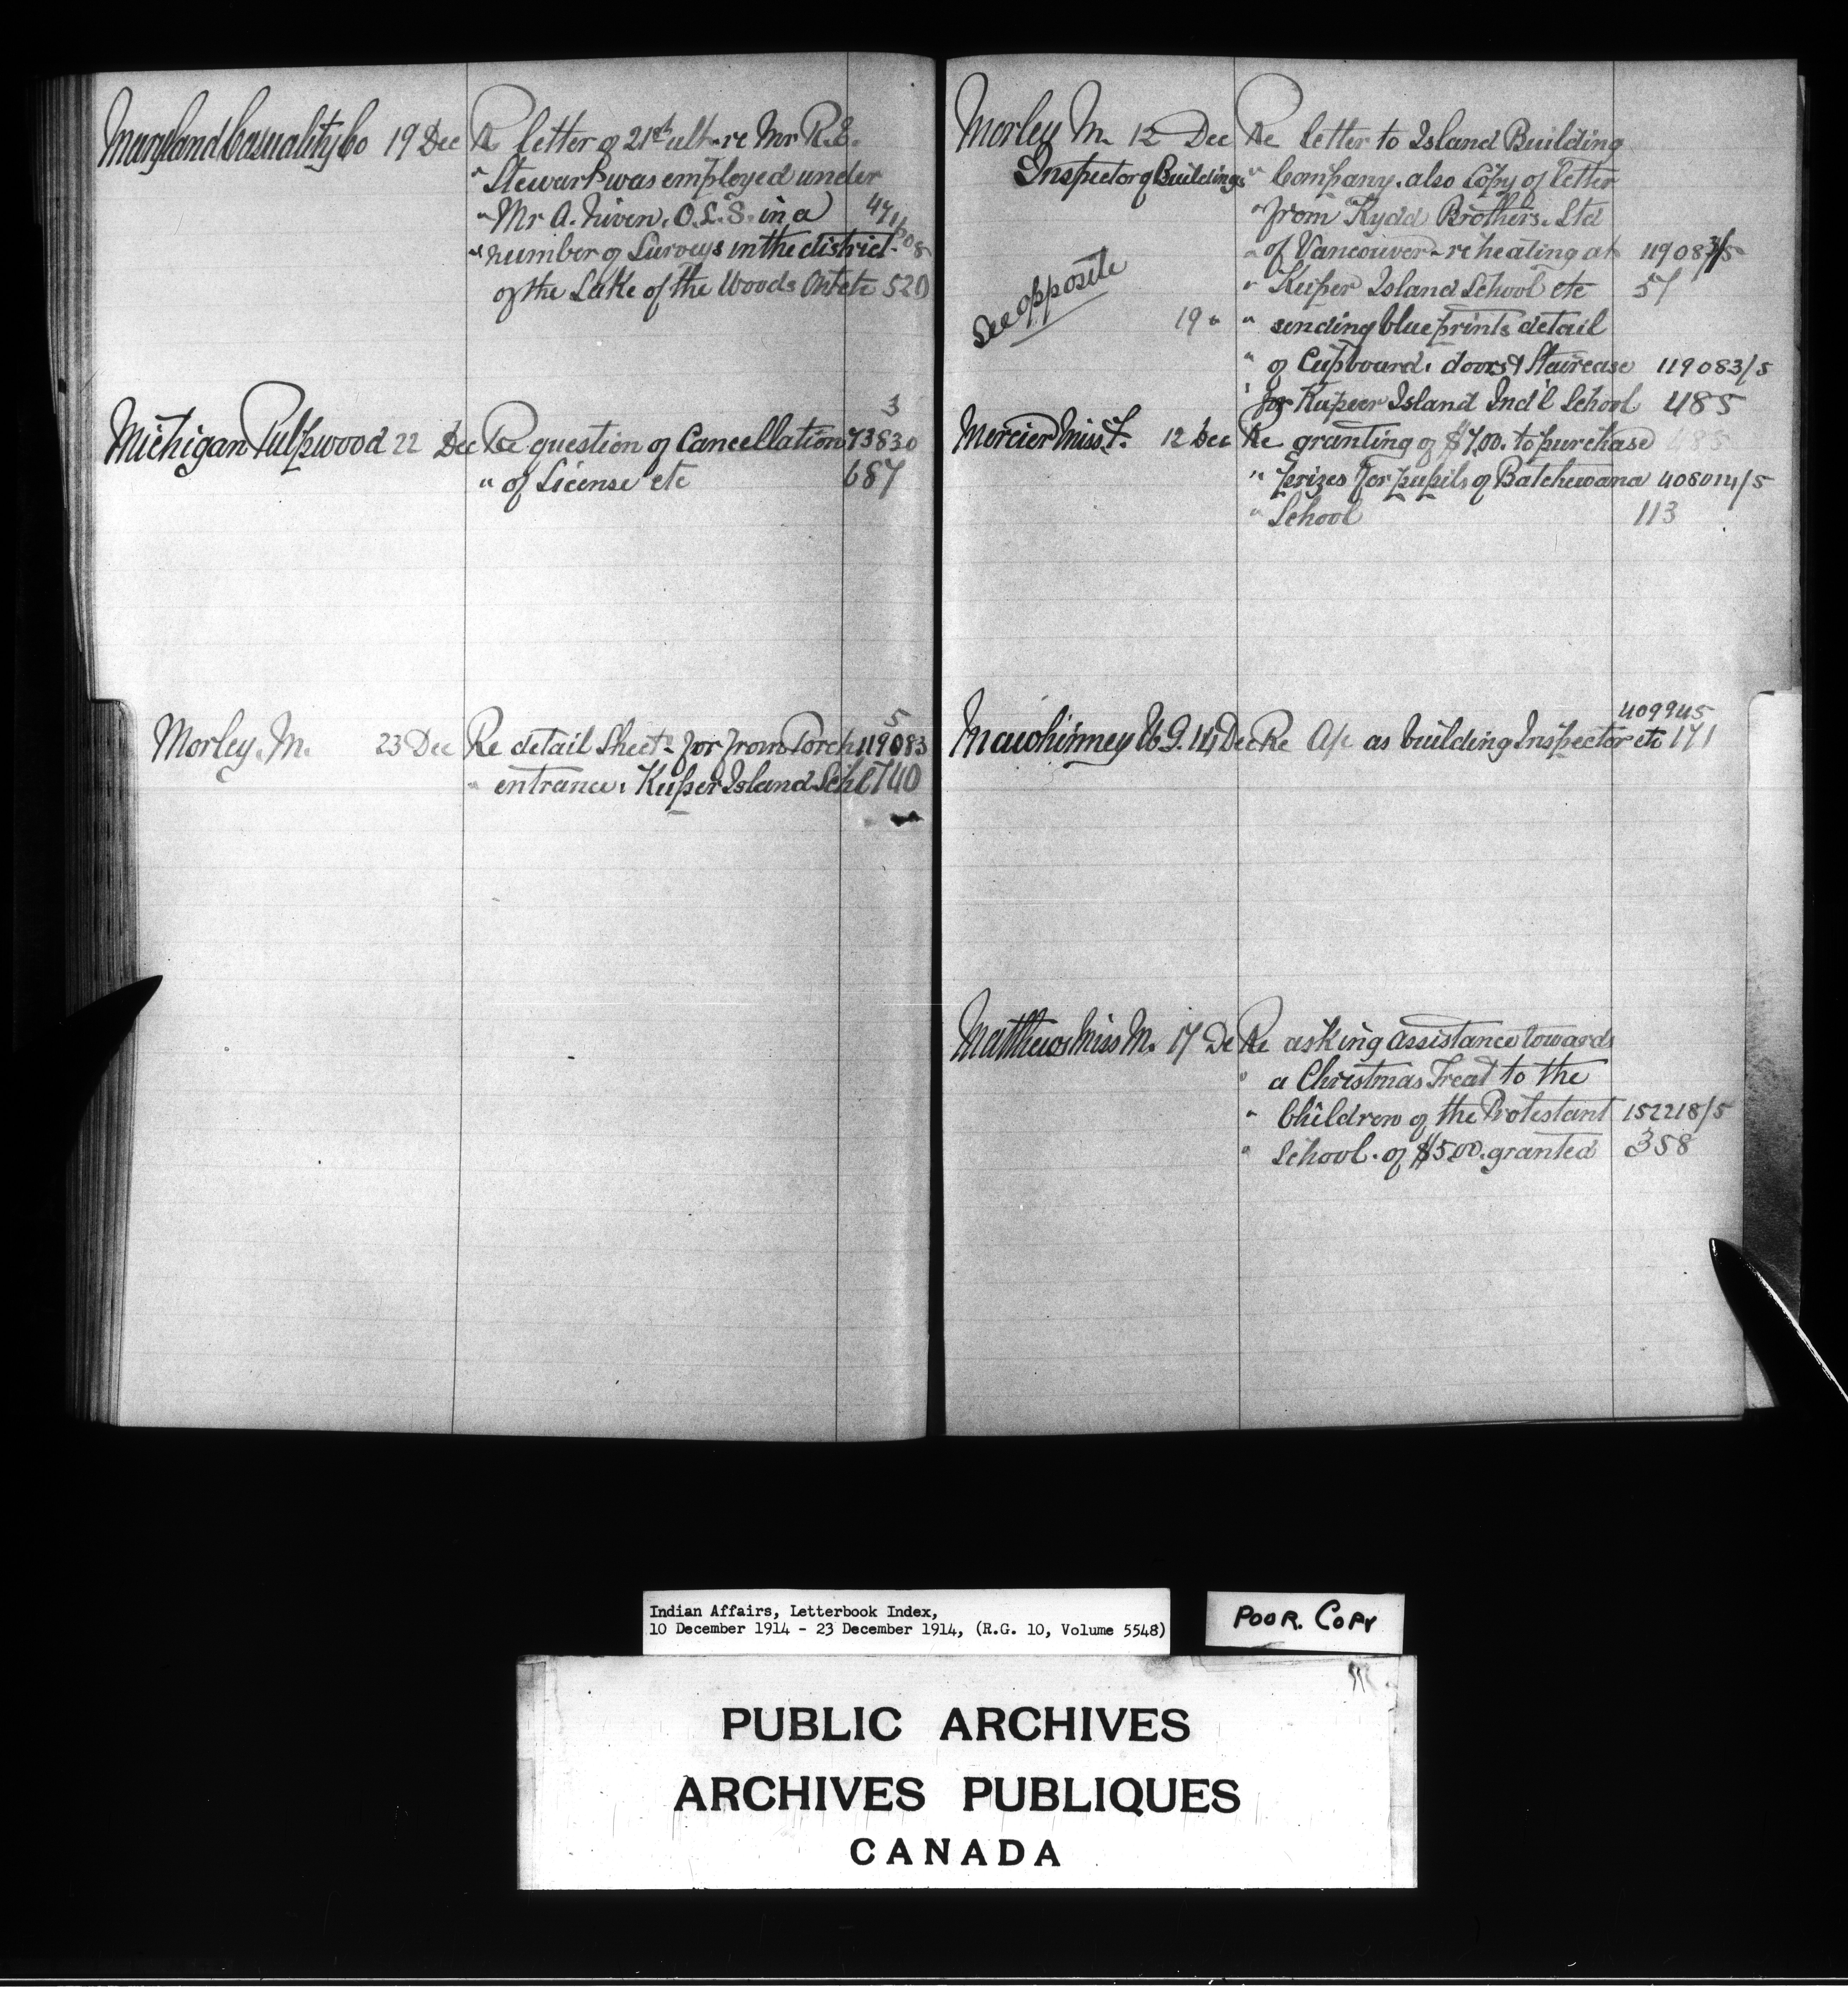 Maryland Casuality Co 19 Dec Re letter of 21st ult - re Mr R.E.
" Stewart was employed under
" Mr A. Niven. O.L.S. in a 47
" number of Surveys in the district
of the Lake of the Woods Ont etc 520
3
Michigan Pulpwood 22 Dec Re question of Cancellation 73830
" of License etc 687
5
Morley. M. 23 Dec Re detail Sheets for front Porch 119083
" entrance. Kuper Island Schl 740
Morley M. 12 Dec Re letter to Island Building
Inspector of Buildings " Company. also Copy of letter
" from Kydd Brothers. Ltd
" of Vancouver - re heating at 119083/5
See opposite
" Kuper Island School etc 57
19 " " sending blueprints detail
" of Cupboard. doors & Staircase 119083/5
" for Kuper Island Ind'l School 485
Mercier Miss T. 12 Dec Re granting of $7.00. to purchase 485
" prizes for pupils of Batchewana 408014/5
" School 113
409945
Mawhinney W.J. 14 Dec Re A/c as building Inspector etc 171
Matthews Miss M. 17 De Re asking assistance towards
" a Christmas Treat to the
" Children of the Protestant 152218/5
" School. of $5.00. granted 358
Indian Affairs, Letterbook Index,
10 December 1914 - 23 December 1914, (R.G. 10, Volume 5548)
POOR. COPY
PUBLIC ARCHIVES
ARCHIVES PUBLIQUES
CANADA